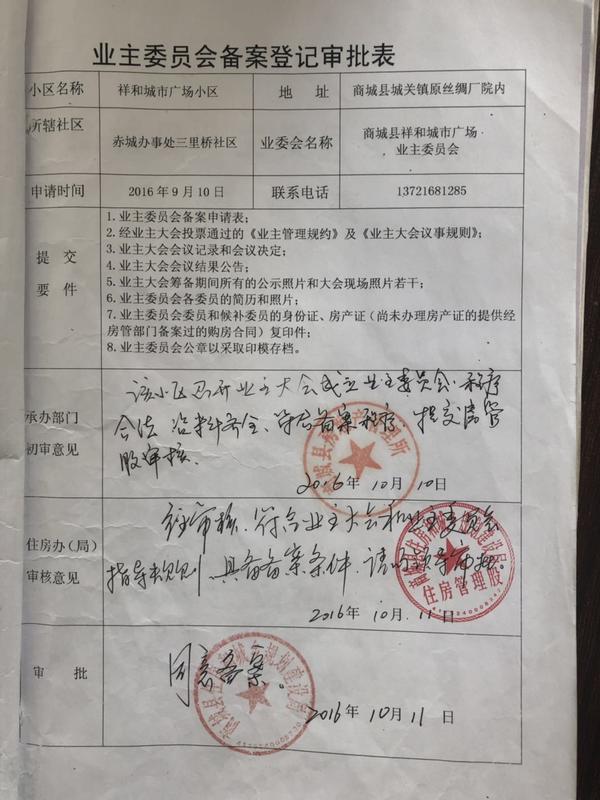 业主委员会备案登记审批表
小区名称 祥和城市广场小区 地 址 商城县城关镇原丝绸厂院内
所辖社区 赤城办事处三里桥社区 业委会名称 商城县祥和城市广场
业主委员会
申请时间 2016年9月10日 联系电话 13721681285
提 交
要 件
1.业主委员会备案申请表;
2.经业主大会投票通过的《业主管理规约》及《业主大会议事规则》;
3.业主大会会议记录和会议决定;
4.业主大会会议结果公告;
5.业主大会筹备期间所有的公示照片和大会现场照片若干;
6.业主委员会各委员的简历和照片;
7.业主委员会委员和候补委员的身份证、房产证(尚未办理房产证的提供经
房管部门备案过的购房合同)复印件;
8.业主委员会公章以采取印模存档。
承办部门
初审意见
该小区召开业主大会成立业主委员会、程序
合法 资料齐全、符合备案程序、提交房管
股审核.
2016年10月10日
住房办(局)
审核意见
经审核、符合业主大会和业主委员会
指导规则 具备备案条件,请领导审批。
住房管理股
2016年10月11日
审 批
同意备案。
2016年10月11日